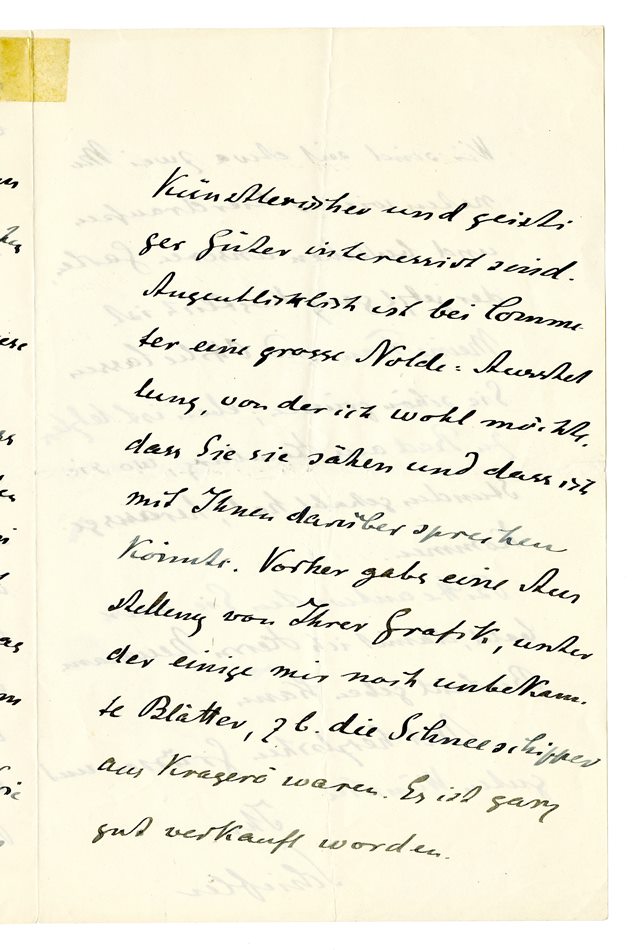 Künstlerischer und geisti
ger Güter interessirt sind.
Augenblicklich ist bei Comme
ter eine grosse Nolde=Ausstel
lung, von der ich wohl möchte,
dass Sie sie sähen und dass ich
mit Ihnen darüber sprechen
könnte. Vorher gabs eine Aus
stellung von Ihrer Grafik, unter
der einige mir noch unbekann
te Blätter, z b. die Schneeschipper
aus Kragerö waren. Es ist ganz
gut verkauft worden.